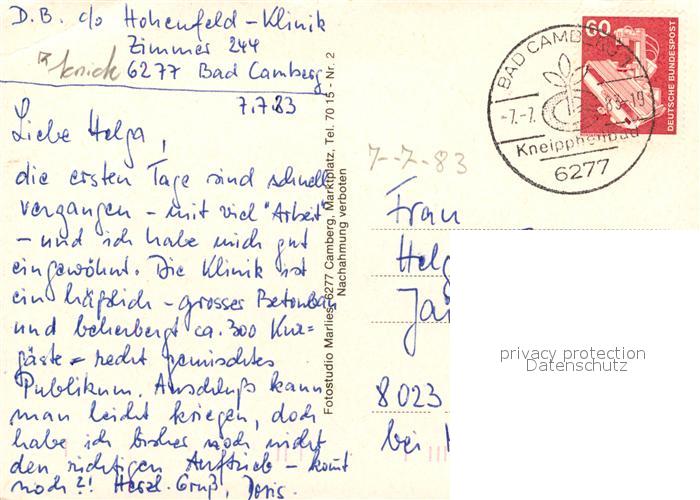 D.B. c/o Hohenfeld-Klinik
Zimmer 244
knick 6277 Bad Camberg
7.7.83
Liebe Helga,
die ersten Tage sind schnell
vergangen - mit viel "Arbeit"
- und ich habe mich gut
eingewöhnt. Die Klinik ist
ein häßlich-grosser Betonbau
und beherbergt ca. 300 Kur=
gäste - recht gemischtes
Publikum. Anschluß kann
man leicht kriegen, doch
habe ich bisher noch nicht
den richtigen Auftrieb - kommt
noch?! Herzl. Gruß, Doris.
Fotostudio Marlies, 6277 Camberg, Marktplatz, Tel. 70 15 - Nr. 2
Nachahmung verboten
60
DEUTSCHE BUNDESPOST
BAD CAMBERG 1
-7.-7.83-19
Kneippheilbad
6277
7-7-83
Frau
Helg
Ja
8023
bei
privacy protection
Datenschutz